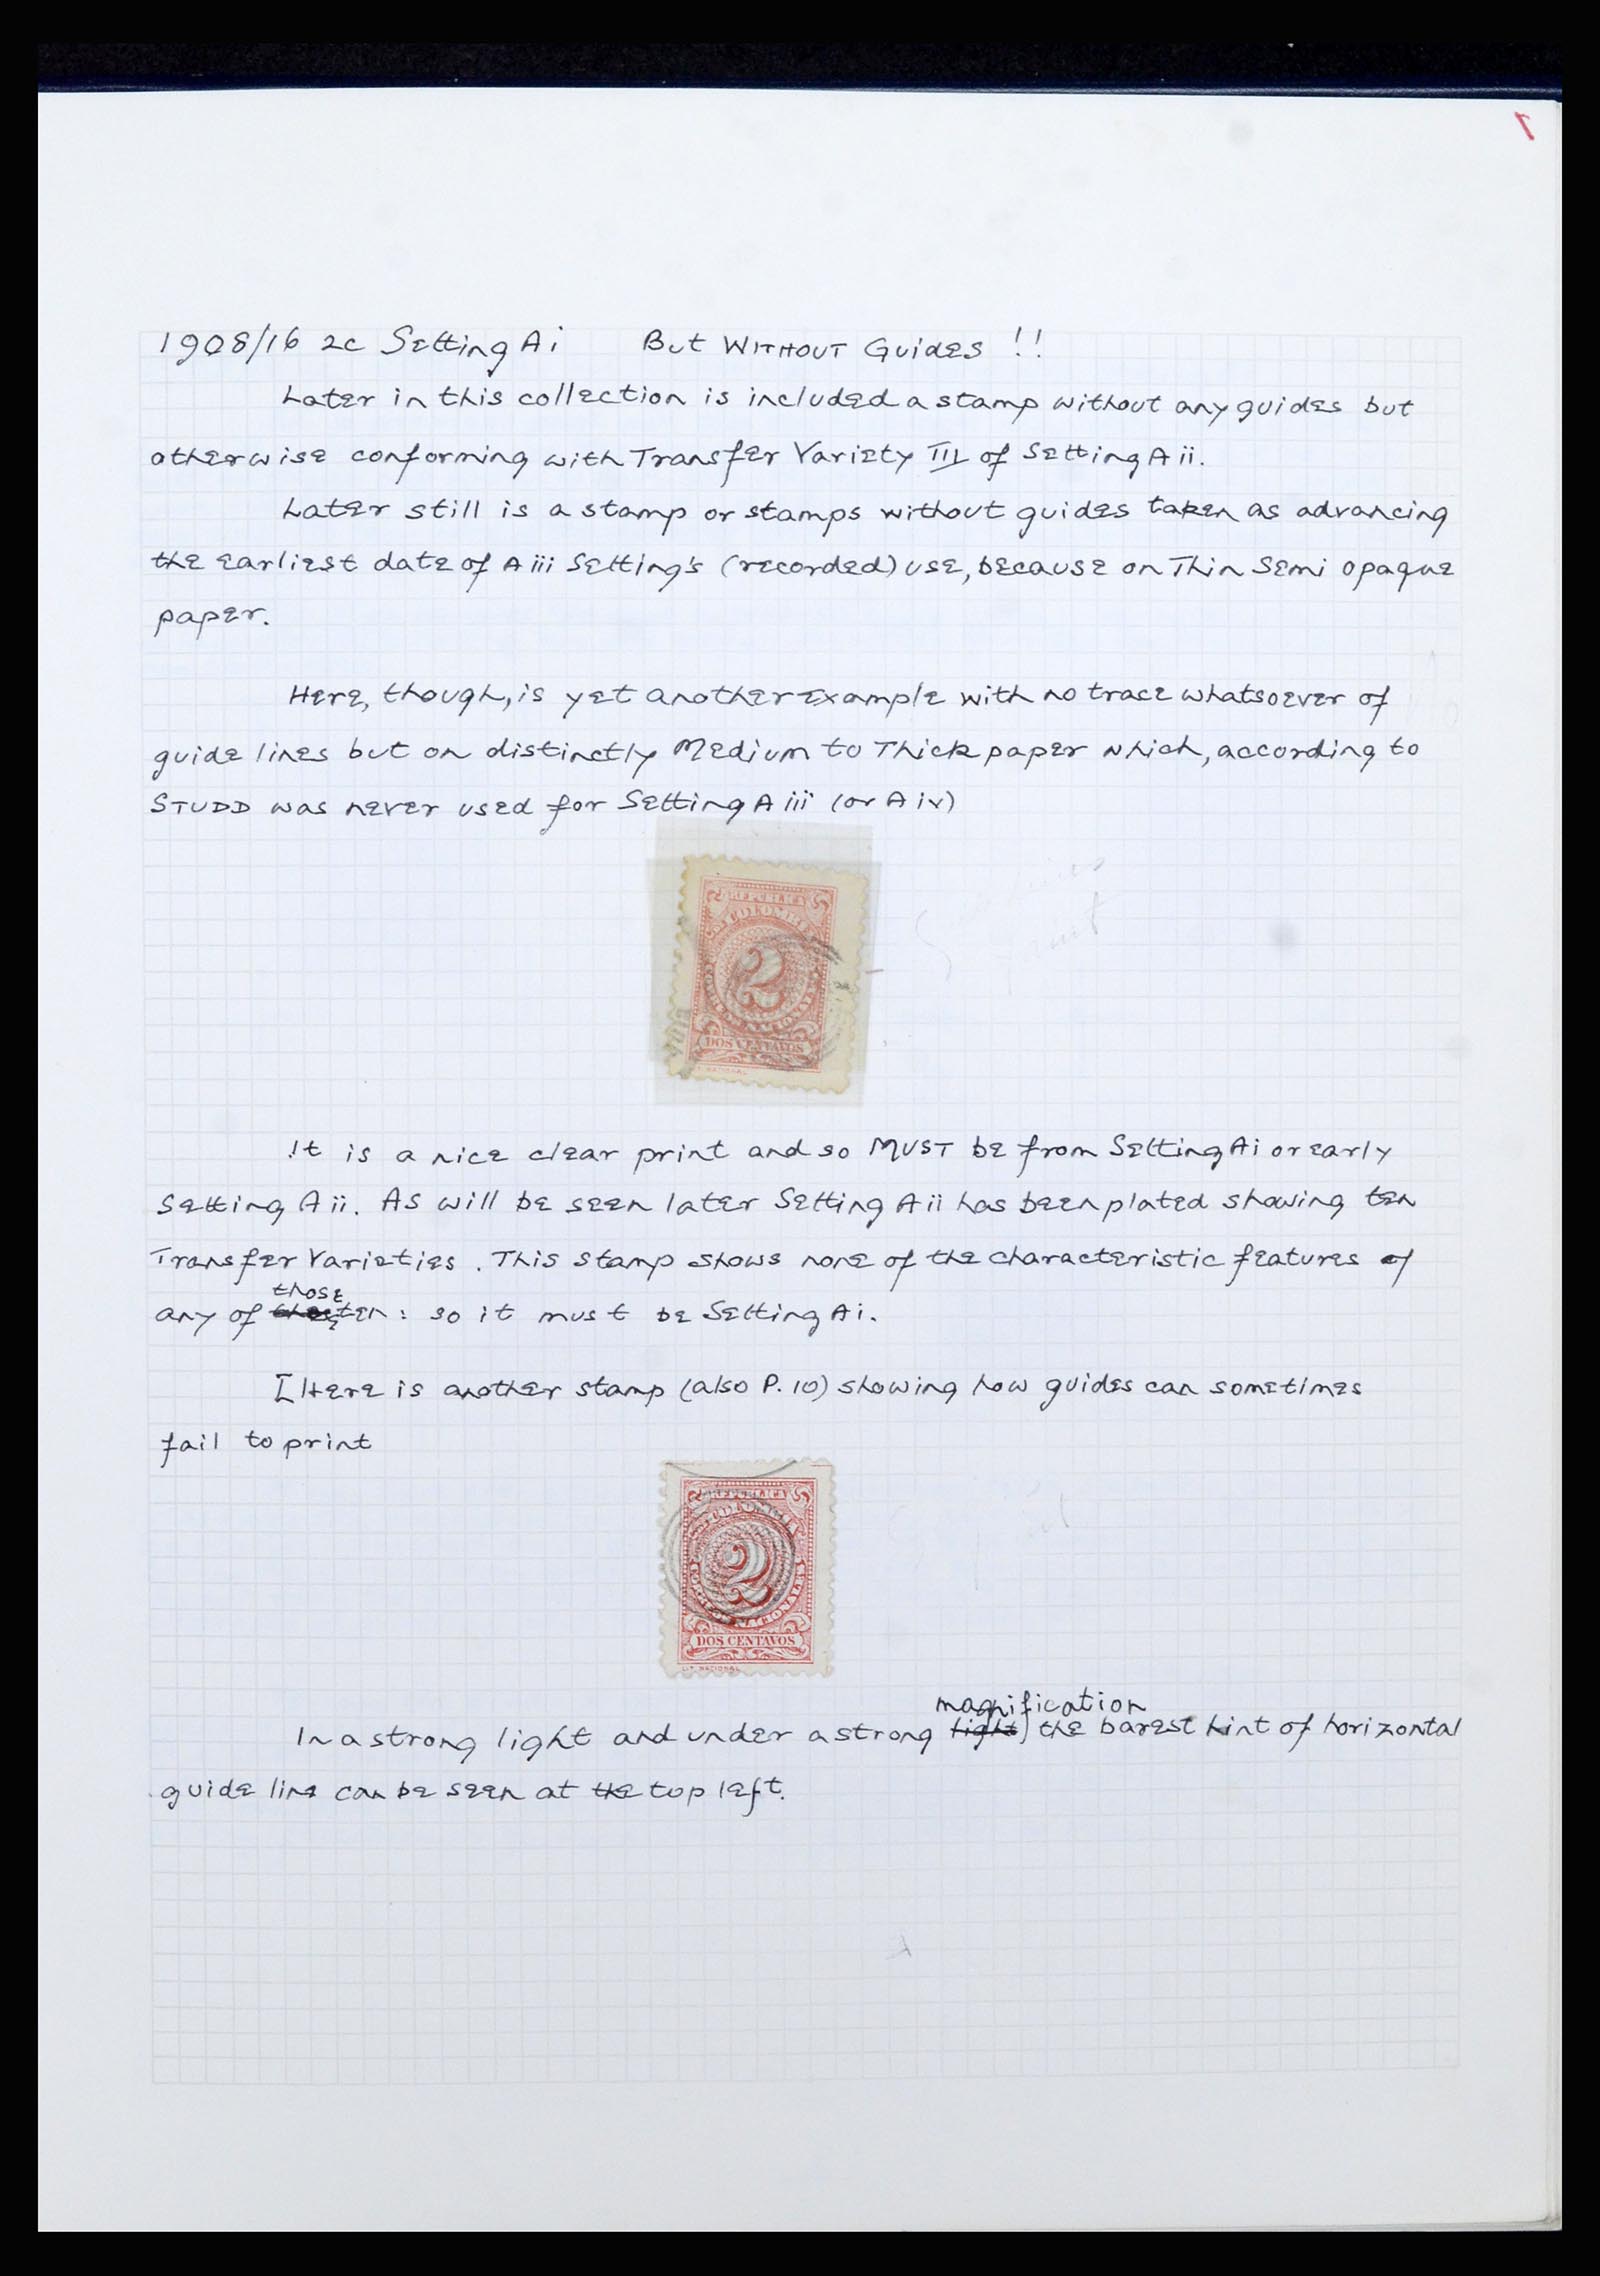 7
1908/16 2c Setting Ai But WITHOUT Guides !!
Later in this collection is included a stamp without any guides but
otherwise conforming with Transfer Variety III of Setting A ii.
Later still is a stamp or stamps without guides taken as advancing
the earliest date of A iii Setting's (recorded) use, because on Thin Semi opaque
paper.
Here, though, is yet another example with no trace whatsoever of
guide lines but on distinctly Medium to Thick paper which, according to
STUDD was never used for Setting A iii (or A iv)
REPUBLICA
COLOMBIA
2
CORREOS NACIONALES
DOS CENTAVOS
LIT. NACIONAL
It is a nice clear print and so MUST be from Setting Ai or early
Setting A ii. As will be seen later Setting A ii has been plated showing ten
Transfer Varieties. This stamp shows none of the characteristic features of
those
any of ten: so it must be Setting Ai.
[Here is another stamp (also P. 10) showing how guides can sometimes
fail to print
REPUBLICA
COLOMBIA
2
CORREOS NACIONALES
DOS CENTAVOS
LIT. NACIONAL
magnification
In a strong light and under a strong light) the barest hint of horizontal
guide line can be seen at the top left.